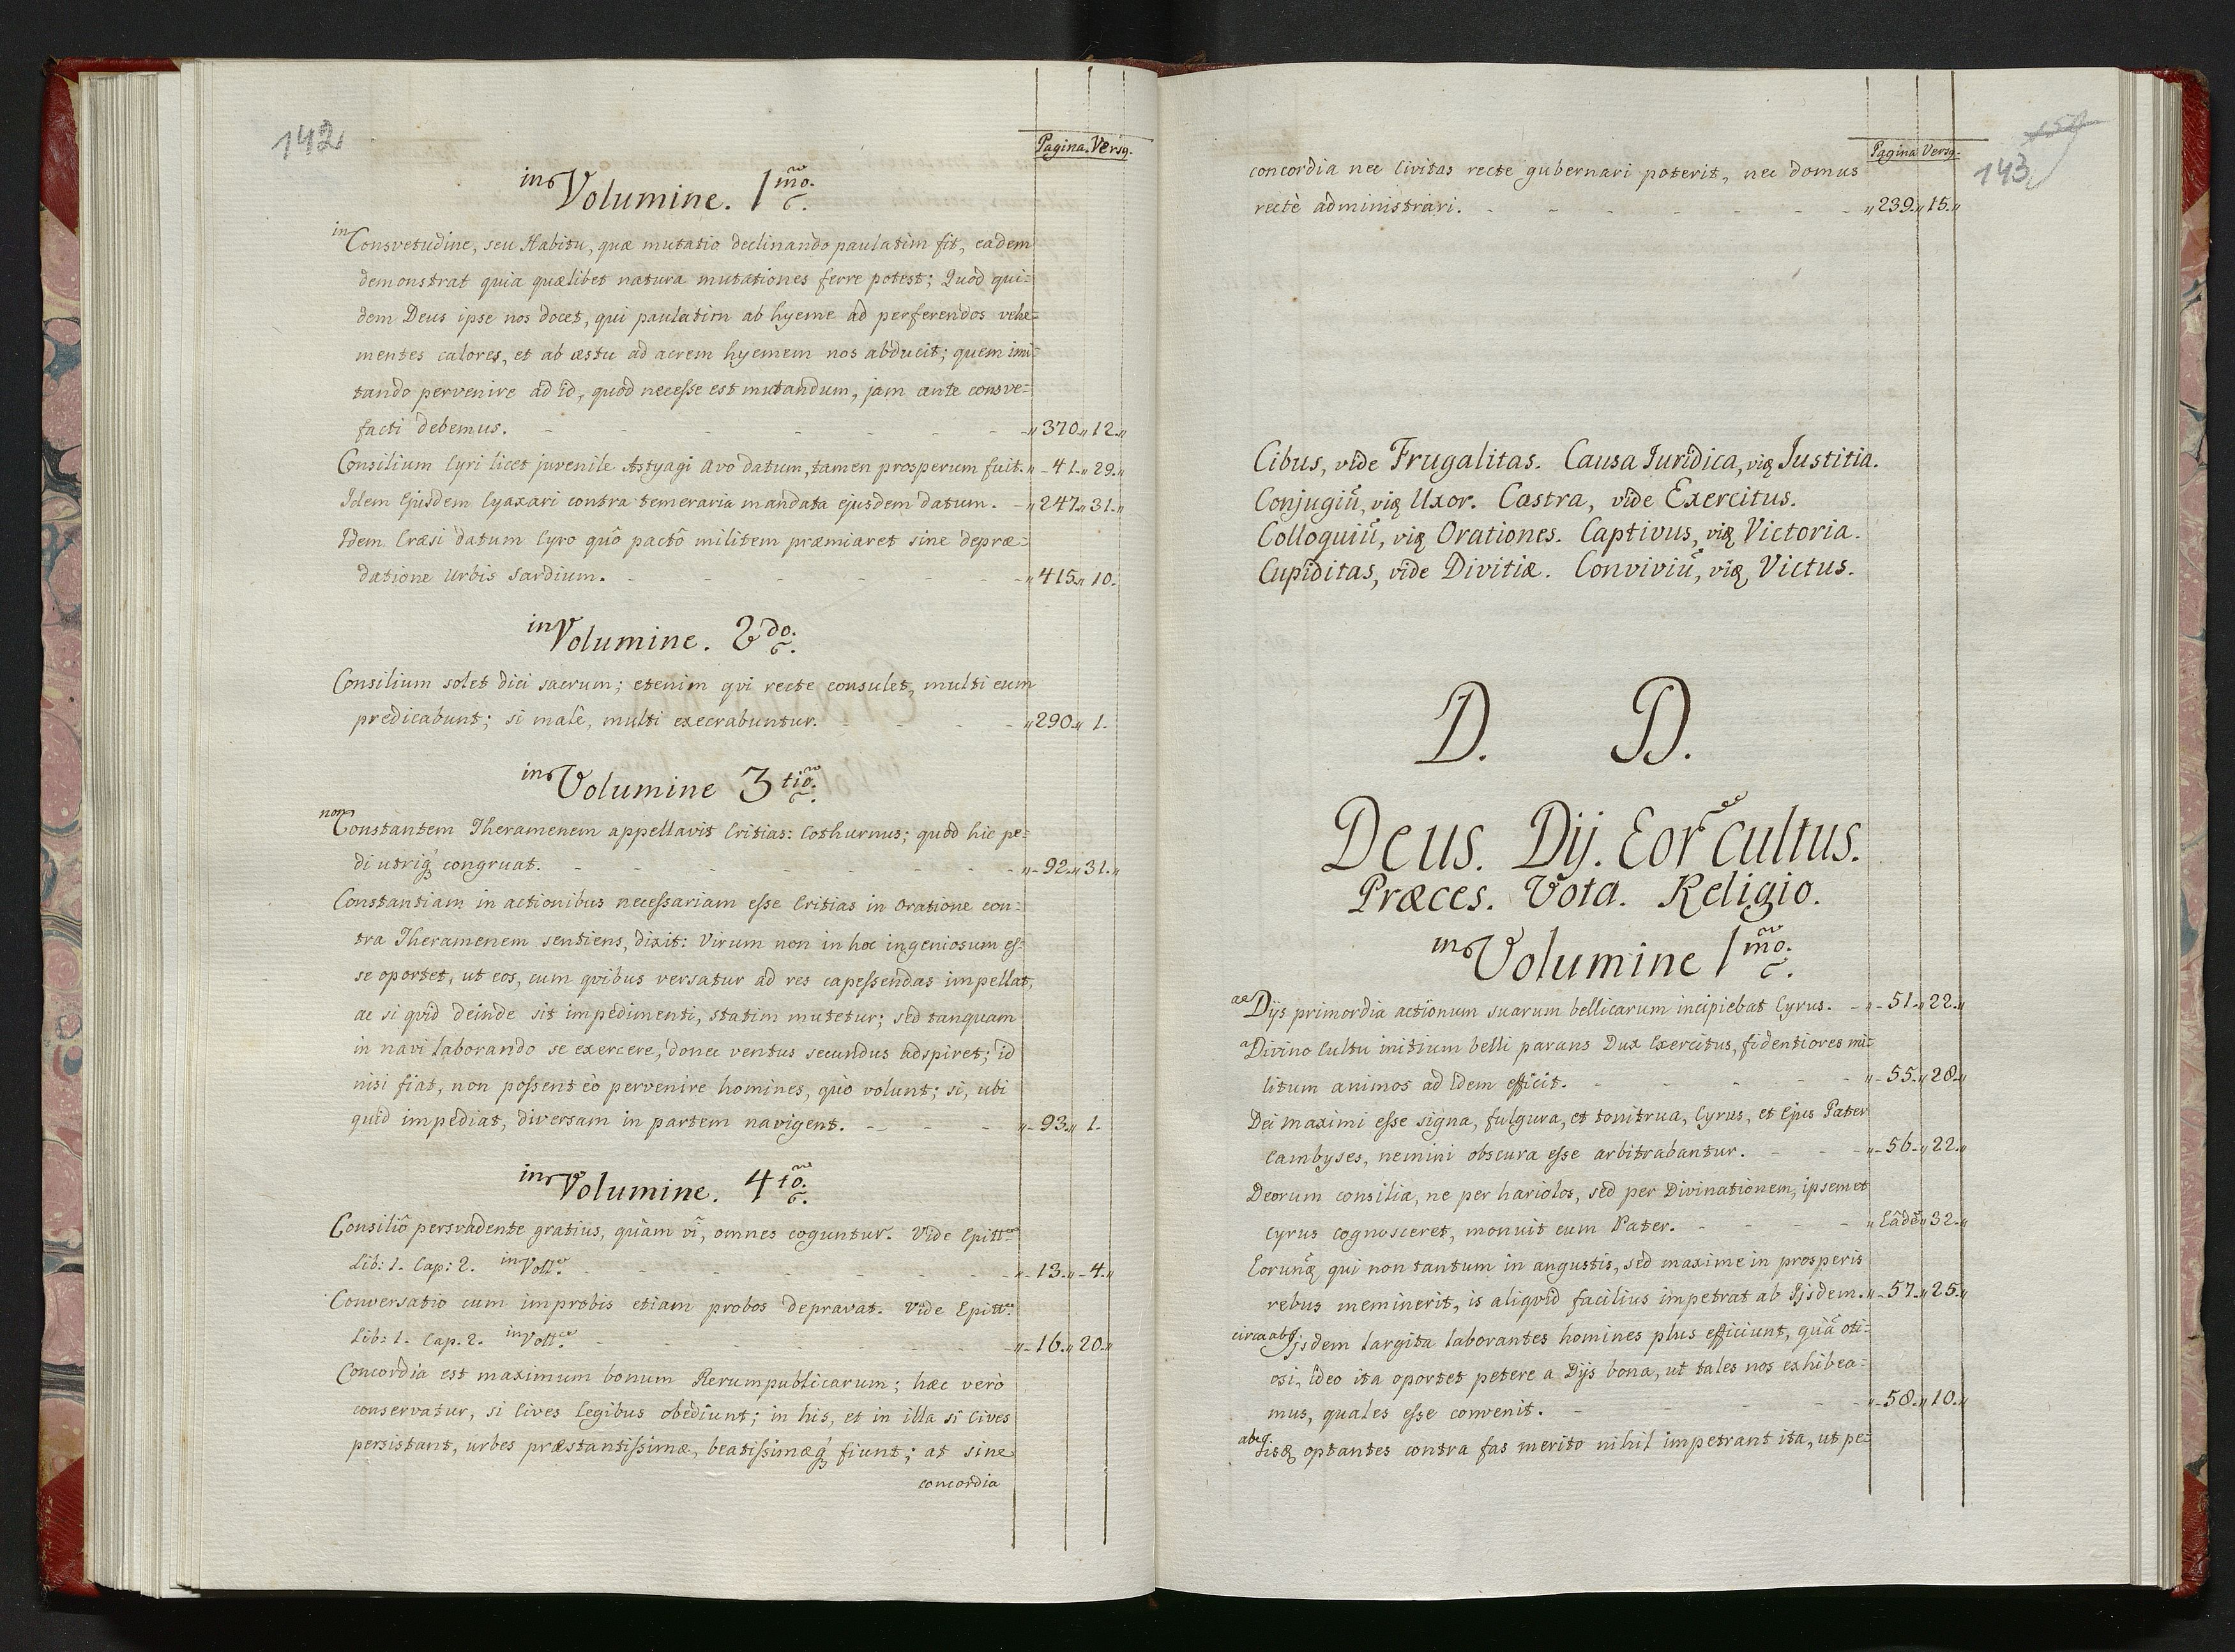 142
Pagina. Versq.
in Volumine. 1mo.
in Consvetudine, seu Habitu, quæ mutatio declinando paulatim fit, eadem
demonstrat quia quælibet natura mutationes ferre potest; Quod qui=
dem Deus ipse nos docet, qui paulatim ab hyeme ad perferendos vehe=
mentes calores, et ab æstu ad acrem hyemem nos abducit; quem imi=
tando pervenire ad id, quod necesse est mutandum, jam ante consve=
facti debemus. - - - - - - - „370.„12.„
Consilium Cyri licet juvenile Astyagi Avo datum, tamen prosperum fuit. „-41.„29.„
Idem Ejusdem Cyaxari contra temeraria mandata ejusdem datum. - „247.„31.„
Idem Cræsi datum Cyro quô pactô militem præmiaret sine depræ=
datione Urbis Sardium. - - - - - - „415.„10.
in Volumine. 2do.
Consilium solet dici sacrum; etenim qvi recte consulet, multi eum
predicabunt; si malè, multi execrabuntur. - - - - „290.„1.
in Volumine 3tio.
non Constantem Theramenem appellavit Critias: Cothurnus; quod hic pe=
di utriq; congruat. - - - - - - - „-92.„31.„
Constantiam in actionibus necessariam esse Critias in Oratione con=
tra Theramenem sentiens, dixit: Virum non in hoc ingeniosum es=
se oportet, ut eos, cum qvibus versatur ad res capessendas impellat,
ac si qvid deinde sit impedimenti, statim mutetur; sed tanquam
in navi laborando se exercere, donec ventus secundus adspiret; id
nisi fiat, non possent eò pervenire homines, quò volunt; si, ubi
quid impediat, diversam in partem navigent. - - - „-93.„1.
in Volumine. 4to.
Consiliô persvadente gratius, quàm vî, omnes coguntur. Vide Epitt.
Lib: 1. Cap: 2. in Voll. - - - - - - - „-13.„-4.„
Conversatio cum improbis etiam probos depravat. Vide Epitt.
Lib: 1. Cap. 2. in Voll. - - - - - - - „-16.„20.„
Concordia est maximum bonum Rerumpublicarum; hæc verò
conservatur, si Cives Legibus obediunt; in his, et in illa si Cives
persistant, urbes præstantissimæ, beatissimæq; fiunt; at sine
concordia
143
Pagina Versq.
concordia nec Civitas recte gubernari poterit, nec domus
rectè administrari. - - - - - - „239.„15.„
Cibus, vide Frugalitas. Causa Juridica, viꝫ Justitia.
Conjugiũ, viꝫ Uxor. Castra, vide Exercitus.
Colloquiũ, viꝫ Orationes. Captivus, viꝫ Victoria.
Cupiditas, vide Divitiæ. Conviviũ, viꝫ Victus.
D. D.
Deus. Dij. Eor̃ cultus.
Præces. Vota. Religio.
in Volumine 1mo.
aa Dijs primordia actionum suarum bellicarum incipiebat Cyrus. - „-51.„22.„
a Divino Cultu initium belli parans Dux Exercitus, fidentiores mi=
litum animos ad idem efficit. - - - - - „-55.„28.„
Dei maximi esse signa, fulgura, et tonitrua, Cyrus, et Ejus Pater
Cambyses, nemini obscura esse arbitrabantur. - - - „-56.„22.„
Deorum consilia, ne per hariolos, sed per Divinationem, ipsemet
Cyrus cognosceret, monuit eum Pater. - - - - „Eâdẽ„32.„
Eorunꝫ qui non tantum in angustis, sed maxime in prosperis
rebus meminerit, is aliqvid facilius impetrat ab Ijsdem. „-57.„25.„
circa ab Ijsdem largita laborantes homines plus efficiunt, quã oti=
osi, ideo ita oportet petere a Dijs bona, ut tales nos exhibea=
mus, quales esse convenit. - - - - - „-58.„10.„
optantes contra fas merito nihil impetrant ita, ut pe=